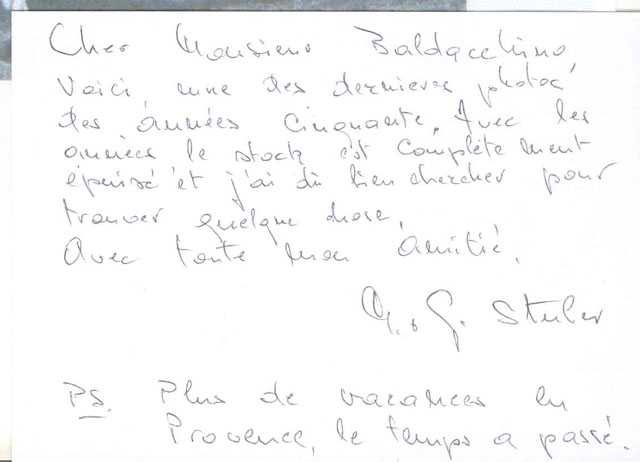 Cher Monsieur Baldacchino,
Voici, une des dernieres photos
des années cinquante. Avec les
années le stock est complètement
épuisé et j'ai dû bien chercher pour
trouver quelque chose.
Avec toute mon amitié.
G. Stuler
PS. Plus de vacances en
Provence, le temps a passé.